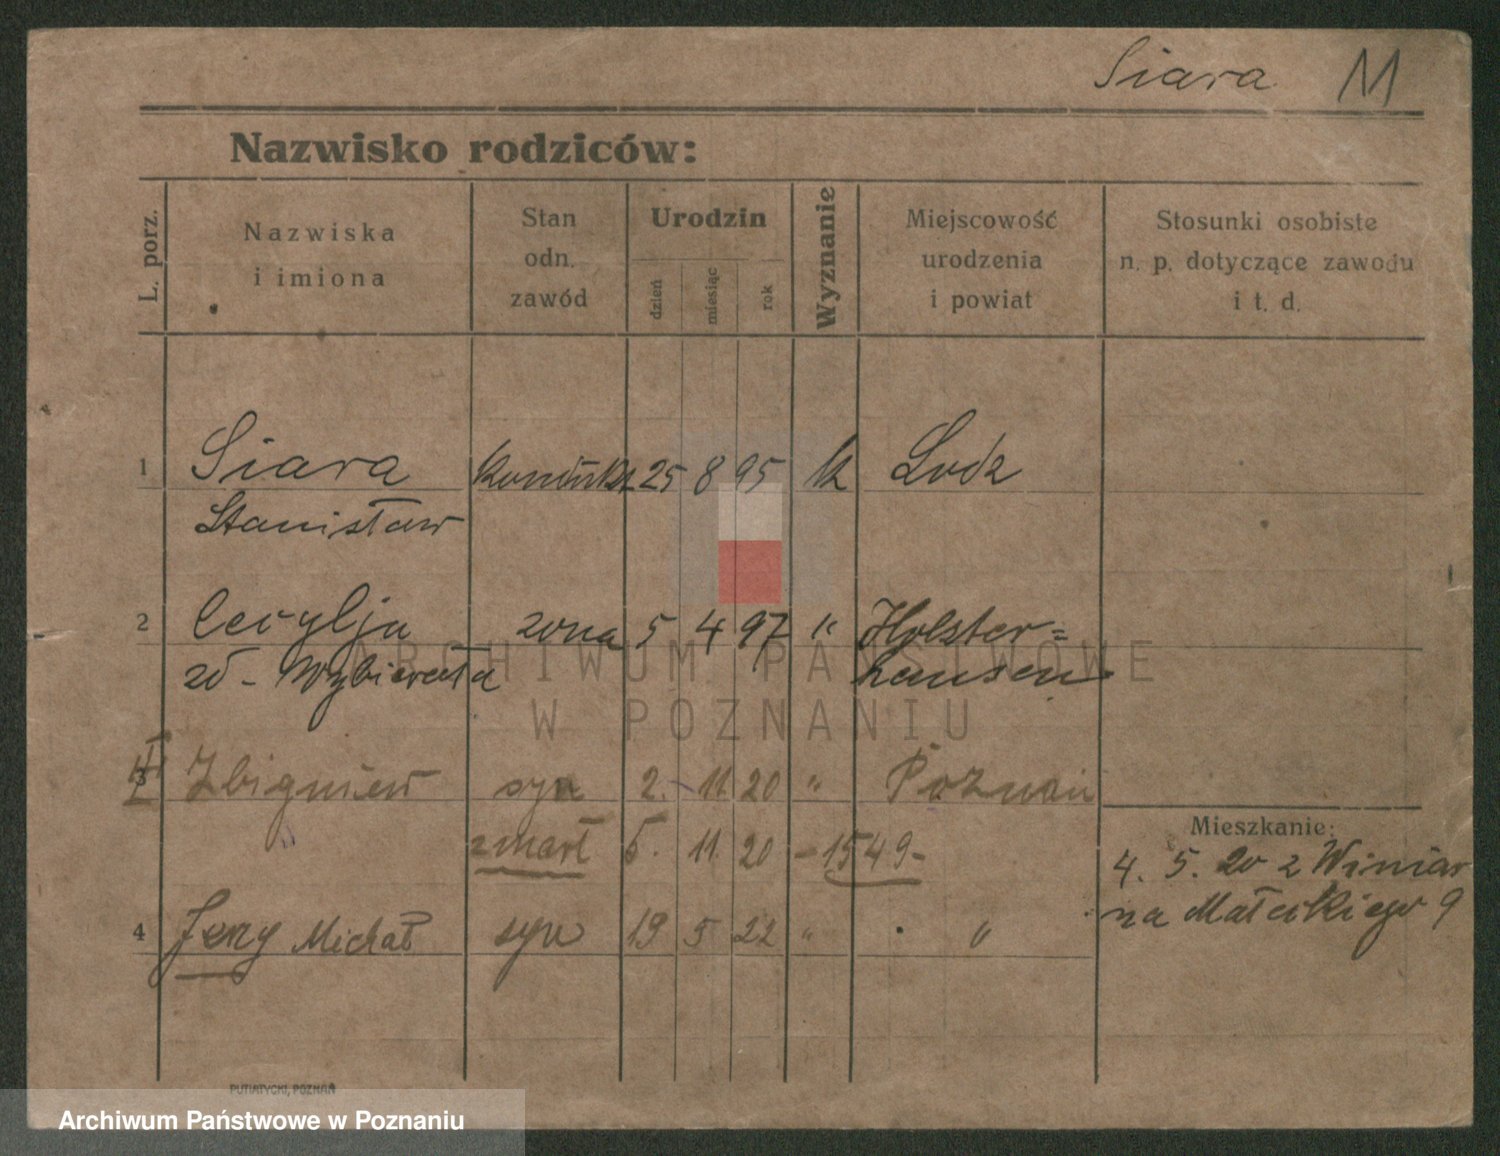 Siara M
Nazwisko rodziców:
L. porz.
Nazwiska
i imiona
Stan
odn.
zawód
Urodzin
dzień
miesiąc
rok
Wyznanie
Miejscowość
urodzenia
i powiat
Stosunki osobiste
n. p. dotyczące zawodu
i t. d.
1 Siara 25 8 95 k Lodz
Stanisław
2 Cecylja zona 5 4 97 " Holster=
zd - Wybierała hausen
3 Zbigniew syn 2. 11. 20 " Poznań
zmarł 5. 11. 20 - 1549 -
Mieszkanie:
4. 5. 20 z Winiar
na Małeckiego 9
4 Jerzy Michał syn 19 5 22 " "
PUTIATYCKI, POZNAŃ
ARCHIWUM PAŃSTWOWE
W POZNANIU
Archiwum Państwowe w Poznaniu